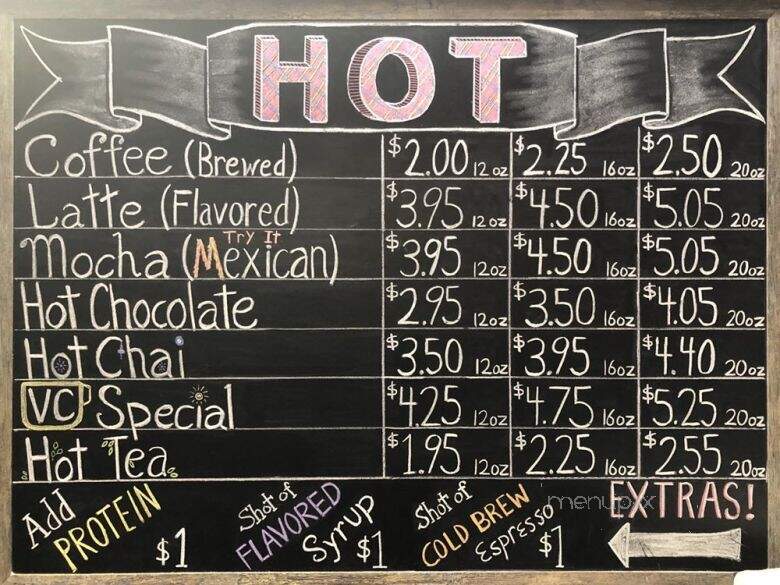 HOT
Coffee (Brewed) $2.00 12oz $2.25 16oz $2.50 20oz
Latte (Flavored) $3.95 12oz $4.50 16oz $5.05 20oz
Try It
Mocha (Mexican) $3.95 12oz $4.50 16oz $5.05 20oz
Hot Chocolate $2.95 12oz $3.50 16oz $4.05 20oz
Hot Chai $3.50 12oz $3.95 16oz $4.40 20oz
VC Special $4.25 12oz $4.75 16oz $5.25 20oz
Hot Tea $1.95 12oz $2.25 16oz $2.55 20oz
Add
PROTEIN
$1
Shot of
FLAVORED
Syrup
$1
Shot of
COLD BREW
Espresso
$1
EXTRAS!